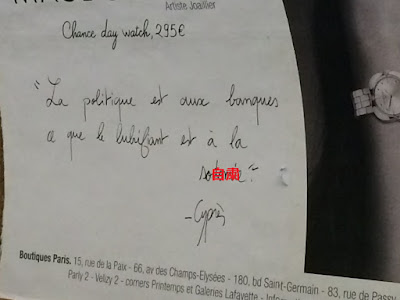 Artiste Joaillier
Chance day watch, 295€
"La politique est aux banques
ce que le lubifiant est à la
- Cyprès
Boutiques Paris. 15, rue de la Paix - 66, av des Champs-Elysées - 180, bd Saint-Germain - 83, rue de Passy
Parly 2 - Velizy 2 - corners Printemps et Galeries Lafayette -